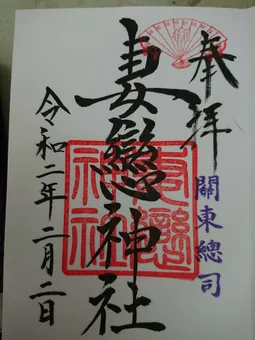 奉拝
關東總司
妻戀神社
令和二年二月二日